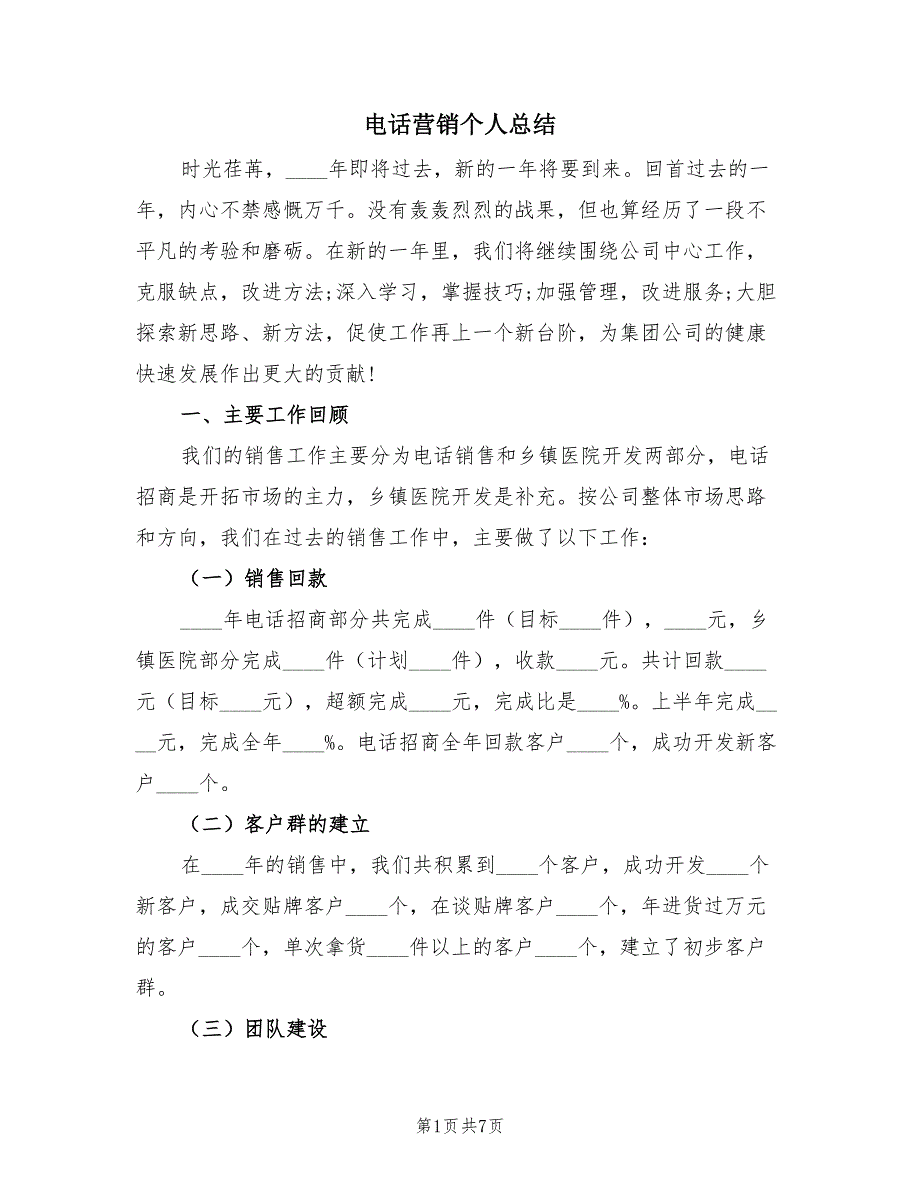 电话营销个人总结
时光荏苒，____年即将过去，新的一年将要到来。回首过去的一
年，内心不禁感慨万千。没有轰轰烈烈的战果，但也算经历了一段不
平凡的考验和磨砺。在新的一年里，我们将继续围绕公司中心工作，
克服缺点，改进方法;深入学习，掌握技巧;加强管理，改进服务;大胆
探索新思路、新方法，促使工作再上一个新台阶，为集团公司的健康
快速发展作出更大的贡献!
一、主要工作回顾
我们的销售工作主要分为电话销售和乡镇医院开发两部分，电话
招商是开拓市场的主力，乡镇医院开发是补充。按公司整体市场思路
和方向，我们在过去的销售工作中，主要做了以下工作：
（一）销售回款
____年电话招商部分共完成____件（目标____件），____元，乡
镇医院部分完成____件（计划____件），收款____元。共计回款____
元（目标____元），超额完成____元，完成比是____%。上半年完成__
__元，完成全年____%。电话招商全年回款客户____个，成功开发新客
户____个。
（二）客户群的建立
在____年的销售中，我们共积累到____个客户，成功开发____个
新客户，成交贴牌客户____个，在谈贴牌客户____个，年进货过万元
的客户____个，单次拿货____件以上的客户____个，建立了初步客户
群。
（三）团队建设
第1页共7页